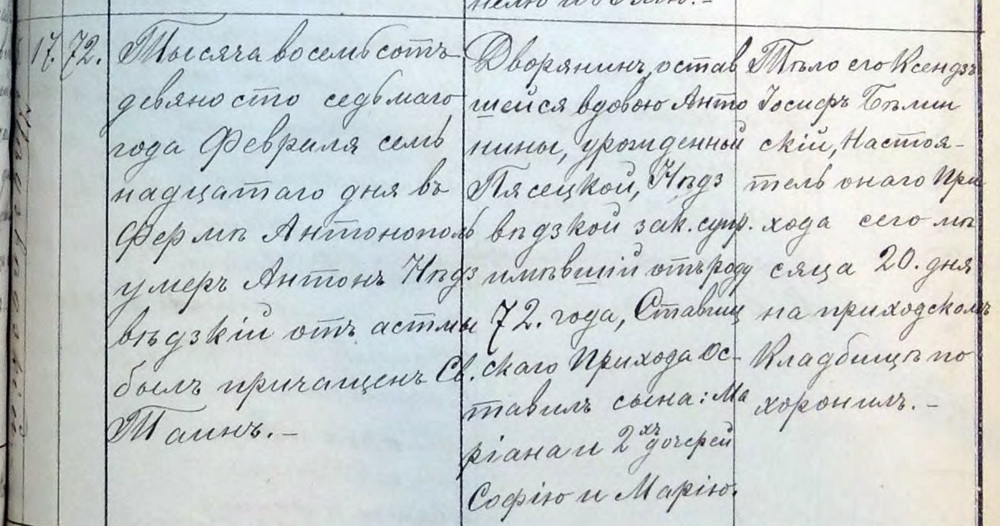 17. 72.
Тысяча восемьсотъ
девяносто седьмаго
года Февраля семь
надцатаго дня въ
Фермѣ Антонополь
умеръ Антонъ Нѣдз
вѣдзкій отъ астмы
былъ причащенъ Св.
Таинъ.–
Дворянинъ, остав
шейся вдовою Анто
нины, урожденный
Пясецкой, Нѣдз
вѣдзкой зак. супр.
имѣвшій отъ роду
72. года, Ставищ
скаго Прихода Ос-
тавилъ сына: Ма
ріана и 2хъ дочерей
Софію и Марію.
Тѣло его Ксендзъ
Іосифъ Бѣлин
скій, Настоя-
тель онаго При
хода сего мѣ
сяца 20. дня
на приходскомъ
Кладбищѣ по
хоронилъ.–